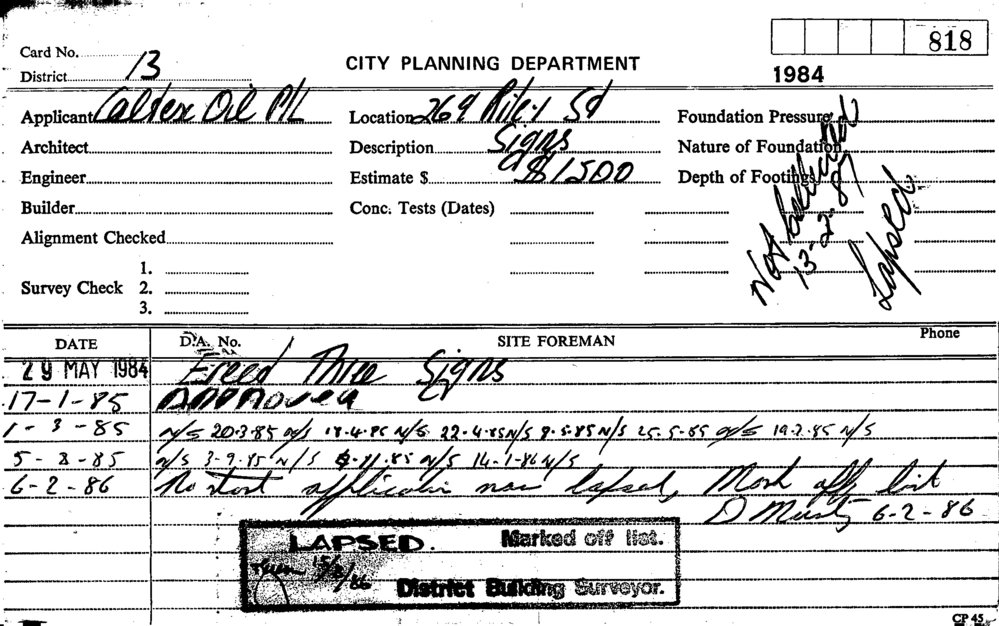 818
Card No.
CITY PLANNING DEPARTMENT
District 13
1984
Applicant Caltex Oil P/L Location 269 Riley St Foundation Pressure
Architect Description Signs Nature of Foundation
Engineer Estimate $ $1500 Depth of Footings
Builder Conc. Tests (Dates)
Alignment Checked
Not
13-2-87
Lapsed
1.
Survey Check 2.
3.
DATE D.A. No. SITE FOREMAN Phone
29 MAY 1984 Ereed Three Signs
17-1-85 Approved
1-3-85 N/S 20.3.85 N/S 18.4.85 N/S 22.4.85 N/S 8.5.85 N/S 25.5.85 N/S 19.7.85 N/S
5-8-85 N/S 3-9.85 N/S 11.85 N/S 14.1-86 N/S
6-2-86 No start application now lapsed, Mark off list
D 6-2-86
LAPSED. Marked off list.
15/2/86
District Building Surveyor.
CP 45